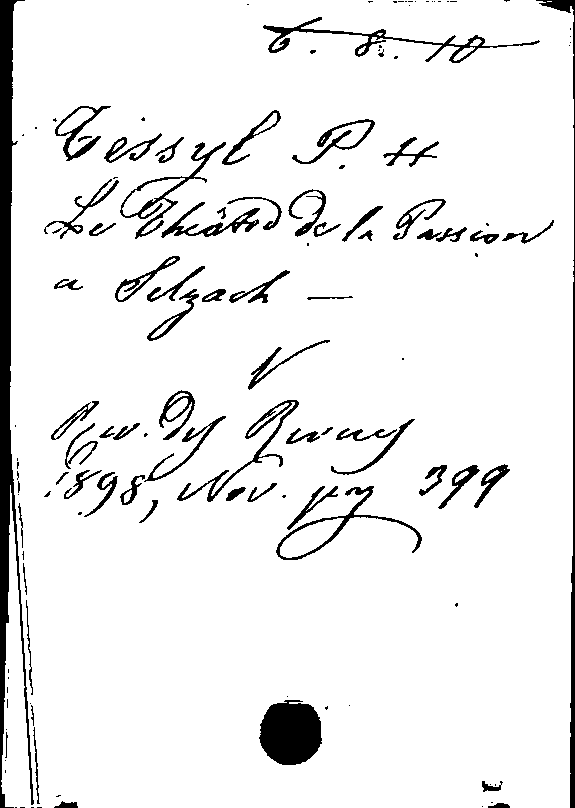 6. 8. 10
Tissyl P. H
Le Théâtre de la Passion
a Selzach —
V
Rev. des Revues
1898, Nov. pg 399